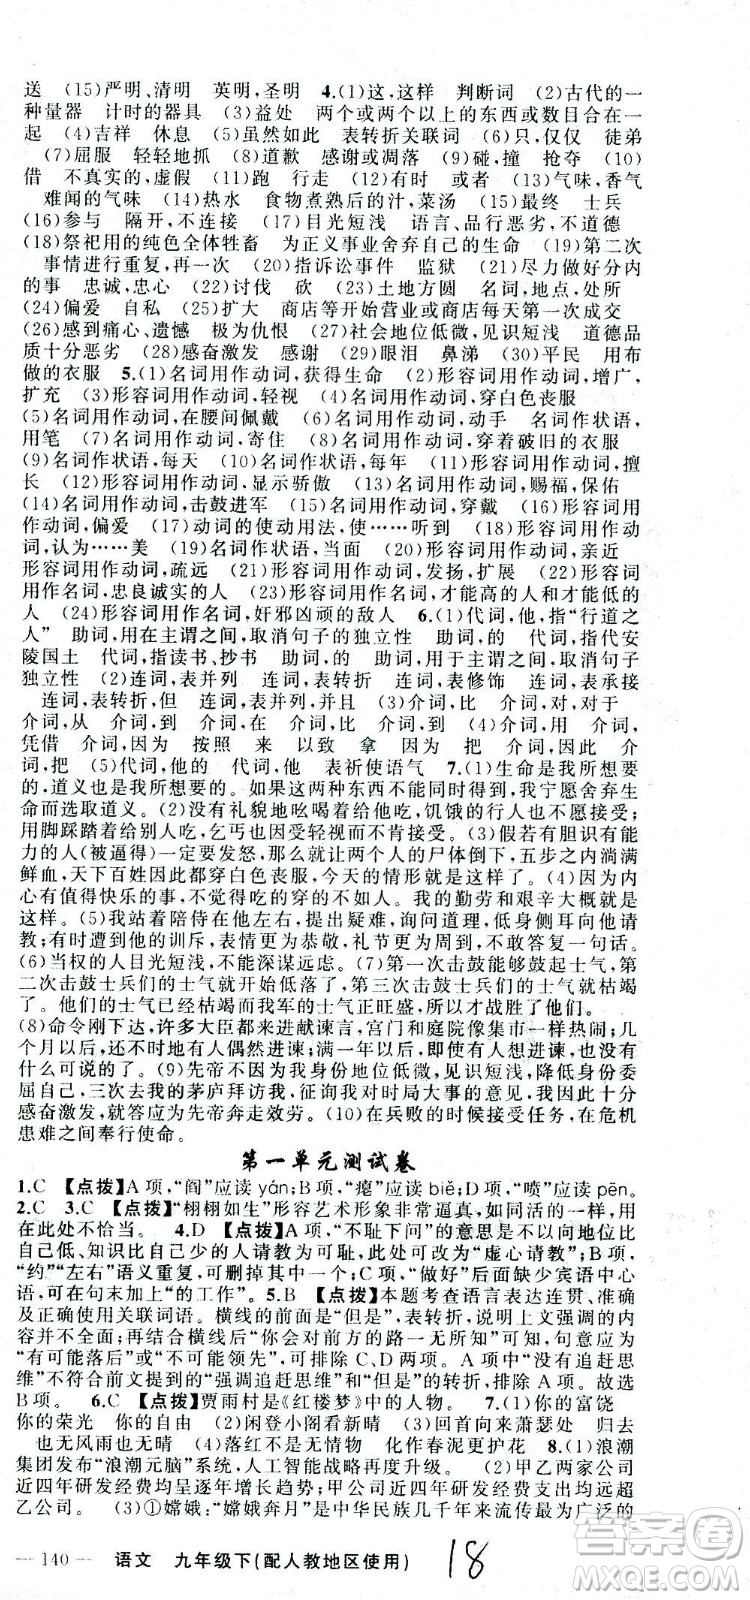 送　(15)严明、清明　英明,圣明　4.(1)这,这样　判断词　(2)古代的一
种量器　计时的器具　(3)益处　两个或两个以上的东西或数目合在一
起　(4)吉祥　休息　(5)虽然如此　表转折关联词　(6)只,仅仅　徒弟
(7)屈服　轻轻地抓　(8)道歉　感谢或凋落　(9)碰,撞　抢夺　(10)
借　不真实的,虚假　(11)跑　行走　(12)有时　或者　(13)气味,香气
难闻的气味　(14)热水　食物煮熟后的汁,菜汤　(15)最终　士兵
(16)参与　隔开,不连接　(17)目光短浅　语言、品行恶劣,不道德
(18)祭祀用的纯色全体牲畜　为正义事业舍弃自己的生命　(19)第二次
事情进行重复,再一次　(20)指诉讼事件　监狱　(21)尽力做好分内
的事　忠诚,忠心　(22)讨伐　砍　(23)土地方圆　名词,地点,处所
(24)偏爱　自私　(25)扩大　商店等开始营业或商店每天第一次成交
(26)感到痛心、遗憾　极为仇恨　(27)社会地位低微,见识短浅　道德品
质十分恶劣　(28)感奋激发　感谢　(29)眼泪　鼻涕　(30)平民　用布
做的衣服　5.(1)名词用作动词,获得生命　(2)形容词用作动词,增广,
扩充　(3)形容词用作动词,轻视　(4)名词用作动词,穿白色丧服
(5)名词用作动词,在腰间佩戴　(6)名词用作动词,动手　名词作状语,
用笔　(7)名词用作动词,寄住　(8)名词用作动词,穿着破旧的衣服
(9)名词作状语,每天　(10)名词作状语,每年　(11)形容词用作动词,擅
长　(12)形容词用作动词,显示骄傲　(13)名词用作动词,赐福,保佑
(14)名词用作动词,击鼓进军　(15)名词用作动词,穿戴　(16)形容词用
作动词,偏爱　(17)动词的使动用法,使……听到　(18)形容词用作动
词,认为……美　(19)名词作状语,当面　(20)形容词用作动词,亲近
形容词用作动词,疏远　(21)形容词用作动词,发扬,扩展　(22)形容词
用作名词,忠良诚实的人　(23)形容词用作名词,才能高的人和才能低的
人　(24)形容词用作名词,奸邪凶顽的敌人　6.(1)代词,他,指“行道之
人”　助词,用在主谓之间,取消句子的独立性　助词,的　代词,指代安
陵国土　代词,指读书、抄书　助词,的　助词,用于主谓之间,取消句子
独立性　(2)连词,表并列　连词,表转折,但　连词,表修饰　连词,表承接
连词,表转折,但　连词,表并列,并且　(3)介词,和　介词,对,对于
介词,从　介词,到　介词,在　介词,比　介词,到　(4)介词,用　介词,
凭借　介词,因为　按照　来　以致　拿　因为　把　用来　因为
介词,把　(5)代词,他的　代词,他　表祈使语气　7.(1)生命是我所想要
的,道义也是我所想要的。如果这两种东西不能同时得到,我宁愿舍弃生
命而选取道义。(2)没有礼貌地吆喝着给他吃,饥饿的行人也不会接受;
用脚踩踏着给别人吃,乞丐也因受轻视而不肯接受。(3)假若有胆识有能
力的人(被逼得)一定要发怒,那么,就让两个人的尸体倒下,五步之内淌满
鲜血,天下百姓因此都穿白色丧服,今天的情形就是这样的。(4)因为内
心有值得快乐的事,不觉得吃的穿的不如人。我的勤劳和艰辛大概就是
这样。(5)我站着陪侍在他左右,提出疑难,询问道理,低身侧耳向他请
教;有时遭到他的训斥,表情更为恭敬,礼节更为周到,不敢答复一句话。
(6)当权的人目光短浅,不能深谋远虑。(7)第一次击鼓能振起士气,第
二次击鼓士兵们的士气就开始低落了,第三次击鼓士兵们的士气就枯竭
了。他们的士气已经枯竭而我军的士气正旺盛,所以才战胜了他们。
(8)命令刚下达,许多大臣都来进献谏言,宫门和庭院像集市一样热闹;几
个月以后,还不时地有人偶然进谏;满一年以后,即使有人想进谏,也没有
什么可说的了。(9)先帝不因为我身份地位低微、见识短浅,降低身份委
屈自己,三次去我的茅庐拜访我,征询我对时局大事的意见,我因此十分
感奋激发,就答应为先帝奔走效劳。(10)在兵败的时候接受任务,在危机
患难之间奉行使命。
第一单元测试卷
1.C　【点拨】A项,“阎”应读yán;B项,“瘪”应读biě;D项,“喷”应读pēn。
2.C　3.C　【点拨】“栩栩如生”形容艺术形象非常逼真,如同活的一样,用
在此处不恰当。　4.D　【点拨】A项,“不耻下问”的意思是不以向地位比
自己低、知识比自己少的人请教为可耻,此处可改为“虚心请教”;B项,
“约”“左右”语义重复,可删掉其中一个;C项,“做好”后面缺少宾语中心
语,可在句末加上“的工作”。　5.B　【点拨】本题考查语言表达连贯、准确
及正确使用关联词语。横线的前面是“但是”,表转折,说明上文强调的内
容是相反的事实;再整合横线后“你会对前方的路一无所知”可知,句意应为
“有可能落后”或“不可能领先”,可排除C、D两项。“但是……强调追赶思
维”不符合前文提到的“强调追赶思维”的转折,排除A项。故选
B。　6.C　【点拨】贾雨村是《红楼梦》中的人物。　7.(1)你的富饶
你的荣光　你的自由　(2)闲登小阁看新晴　(3)回首向来萧瑟处　归去
也无风雨也无晴　(4)落红不是无情物　化作春泥更护花　8.(1)浪潮
集团发布“浪潮元脑”系统,人工智能战略再度升级。(2)甲乙两家公司
近四年研发经费均呈逐年增长趋势;甲公司近四年研发经费支出均远超
乙公司。　(3)①嫦娥:“嫦娥奔月”是中华民族几千年来流传最为广泛的
— 140 —　语文　九年级下(配人教地区使用)　18
作业精灵